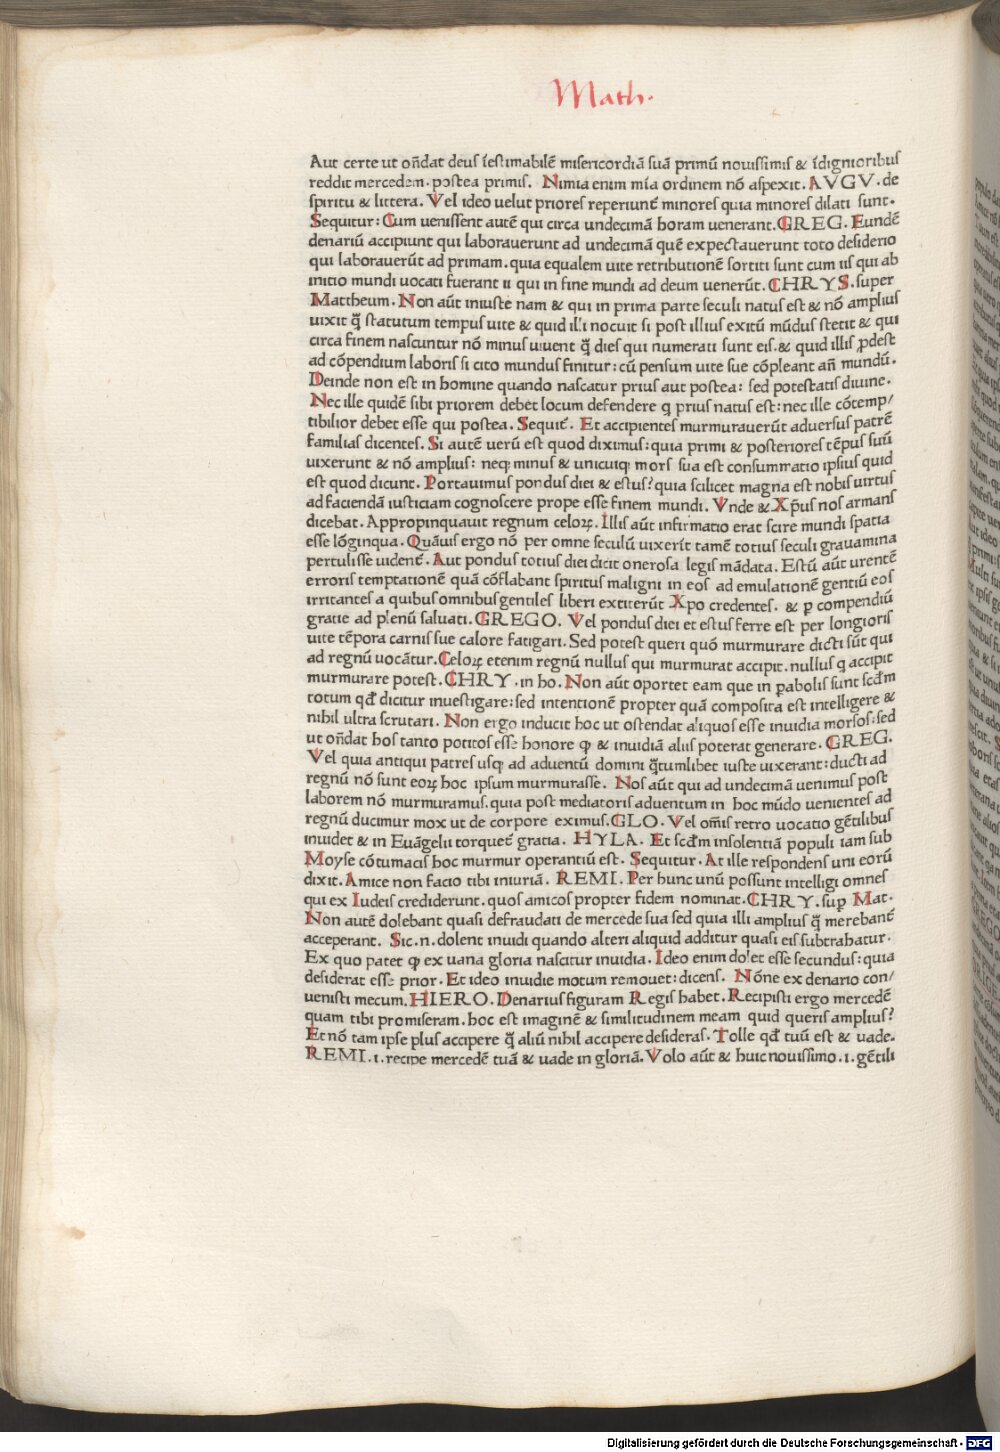 Math.
Aut certe ut on̄dat deus īestimabilē misericordiā suā primū nouissimis & īdignioribus
reddit mercedem. postea primis. Nimia enim mīa ordinem nō aspexit. AVGV. de
spiritu & littera. Vel ideo uelut priores reperiunt᷑ minores quia minores dilati sunt.
Sequitur: Cum uenissent autē qui circa undecimā horam uenerant. GREG. Eundē
denariū accipiunt qui laborauerunt ad undecimā quē expectauerunt toto desiderio
qui laborauerūt ad primam. quia equalem uite retributionē sortiti sunt cum iis qui ab
initio mundi uocati fuerant ii qui in fine mundi ad deum uenerūt. CHRYS. super
Mattheum. Non aūt iniuste nam & qui in prima parte seculi natus est & nō amplius
uixit q̄̄ statutum tempus uite & quid illi nocuit si post illius exitū mūdus stetit & qui
circa finem nascuntur nō minus uiuent q̄̄ dies qui numerati sunt eis. & quid illis ꝓdest
ad cōpendium laboris si cito mundus finitur: cū pensum uite sue cōpleant an̄ mundū.
Deinde non est in homine quando nascatur prius aut postea: sed potestatis diuine.
Nec ille quidē sibi priorem debet locum defendere q prius natus est: nec ille cōtemp/
tibilior debet esse qui postea. Sequit᷑. Et accipientes murmurauerūt aduersus patrē
familias dicentes. Si autē uerū est quod diximus: quia primi & posteriores tēpus suū
uixerunt & nō amplius: neq; minus & unicuiq; mors sua est consummatio ipsius quid
est quod dicunt. Portauimus pondus diei & estus? quia scilicet magna est nobis uirtus
ad faciendā iusticiam cognoscere prope esse finem mundi. Vnde & Xp̄us nos armans
dicebat. Appropinquauit regnum celoꝝ. Illis aūt infirmatio erat scire mundi spatia
esse lōginqua. Quāuis ergo nō per omne seculū uixerīt tamē totius seculi grauamina
pertulisse uident᷑. Aut pondus totius diei dicit onerosa legis mādata. Estū aūt urentē
erroris temptationē quā cōflabant spiritus maligni in eos ad emulationē gentiū eos
irritantes a quibus omnibus gentiles liberi extiterūt Xpo credentes. & ꝑ compendiū
gratie ad plenū saluati. GREGO. Vel pondus diei et estus ferre est per longioris
uite tēpora carnis sue calore fatigari. Sed potest queri quō murmurare dicti sūt qui
ad regnū uocātur. Celoꝝ etenim regnū nullus qui murmurat accipit. nullus q accipit
murmurare potest. CHRY. in ho. Non aūt oportet eam que in ꝑabolis sunt scd̄m
totum qd̄ dicitur inuestigare: sed intentionē propter quā composita est intelligere &
nihil ultra scrutari. Non ergo inducit hoc ut ostendat aliquos esse inuidia morsos: sed
ut on̄dat hos tanto potitos esse honore ꝙ & inuidiā aliis poterat generare. GREG.
Vel quia antiqui patres usq; ad aduentū domini q̄̄tumlibet iuste uixerant: ducti ad
regnū nō sunt eoꝝ hoc ipsum murmurasse. Nos aūt qui ad undecimā uenimus post
laborem nō murmuramus. quia post mediatoris aduentum in hoc mūdo uenientes ad
regnū ducimur mox ut de corpore eximus. GLO. Vel om̄is retro uocatio gētilibus
inuidet & in Euāgelii torquet᷑ gratia. HYLA. Et scd̄m insolentiā populi iam sub
Moyse cōtumacis hoc murmur operantiū est. Sequitur. At ille respondens uni eorū
dixit. Amice non facio tibi iniuriā. REMI. Per hunc unū possunt intelligi omnes
qui ex Iudeis crediderunt. quos amicos propter fidem nominat. CHRY. suꝑ Mat.
Non autē dolebant quasi defraudati de mercede sua sed quia illi amplius q̄̄ merebant᷑
acceperant. Sic .n. dolent inuidi quando alteri aliquid additur quasi eis subtrahatur.
Ex quo patet ꝙ ex uana gloria nascitur inuidia. Ideo enim dolet esse secundus: quia
desiderat esse prior. Et ideo inuidie motum remouet: dicens. Nōne ex denario con/
uenisti mecum. HIERO. Denarius figuram Regis habet. Recipisti ergo mercedē
quam tibi promiseram. hoc est imaginē & similitudinem meam quid queris amplius?
Et nō tam ipse plus accipere q̄̄ aliū nihil accipere desideras. Tolle qd̄ tuū est & uade.
REMI. i. recipe mercedē tuā & uade in gloriā. Volo aūt & huic nouissimo .i. gētili
Digitalisierung gefördert durch die Deutsche Forschungsgemeinschaft - DFG